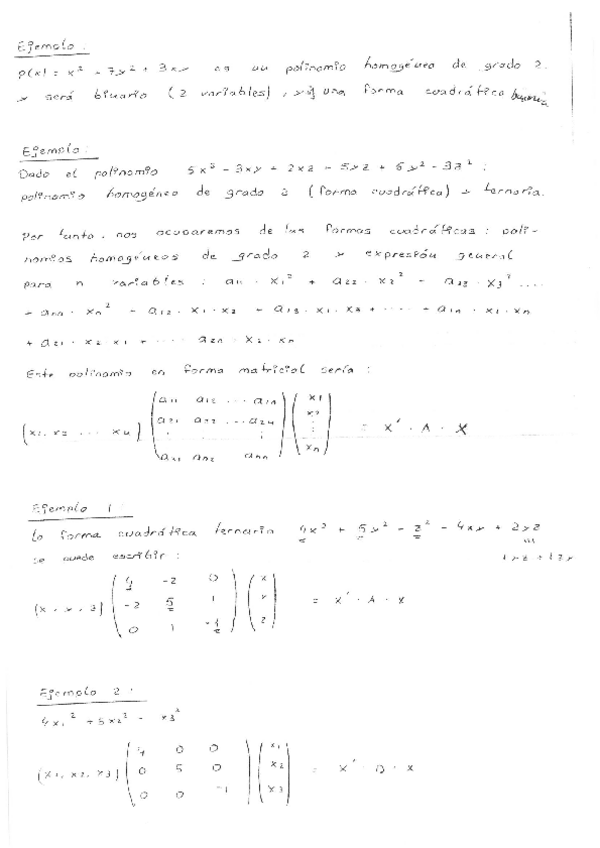 Ejemplo:
P(x) = x² - 7y² + 3xy es un polinomio homogéneo de grado 2.
y será binario (2 variables), una forma cuadrática binaria
Ejemplo:
Dado el polinomio 5x² - 3xy + 2xz - 5yz + 6y² - 3z² :
polinomio homogéneo de grado 2 (forma cuadrática) y ternaria.
Por tanto, nos ocuparemos de las formas cuadráticas: poli-
nomios homogéneos de grado 2 y expresión general
para n variables : a₁₁ · x₁² + a₂₂ · x₂² - a₃₃ · x₃² ....
+ aₙₙ · xₙ² - a₁₂ · x₁ · x₂ + a₁₃ · x₁ · x₃ + ···· + a₁ₙ · x₁ · xₙ
+ a₂₁ · x₂ · x₁ + ···· a₂ₙ · x₂ · xₙ
Este polinomio en forma matricial sería :
(x₁, x₂ ... xₙ) ( a₁₁ a₁₂ ... a₁ₙ ) ( x₁ )
( a₂₁ a₂₂ ... a₂ₙ ) ( x₂ ) = x' · A · x
( ⋮ ⋮ ) ( ⋮ )
( aₙ₁ aₙ₂ aₙₙ ) ( xₙ )
Ejemplo 1 :
La forma cuadrática ternaria 4x² + 5y² - z² - 4xy + 2yz
se puede escribir :
(x · y · z) ( 4 -2 0 ) ( x )
( -2 5 1 ) ( y ) = x' · A · x
( 0 1 -1 ) ( z )
Ejemplo 2 :
4x₁² + 5x₂² - x₃²
(x₁, x₂, x₃) ( 4 0 0 ) ( x₁ )
( 0 5 0 ) ( x₂ ) = x' · D · x
( 0 0 -1 ) ( x₃ )